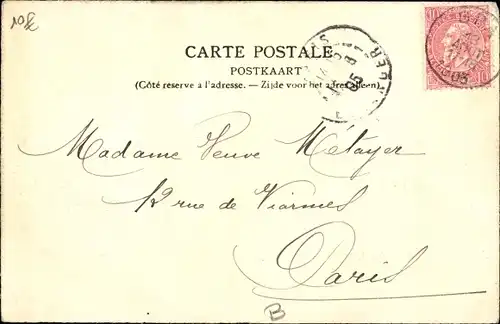 CARTE POSTALE
POSTKAART
(Côté reservé à l'adresse. — Zijde voor het adres alleen)
Madame Veuve Métayer
12 rue de Viarmes
Paris
B